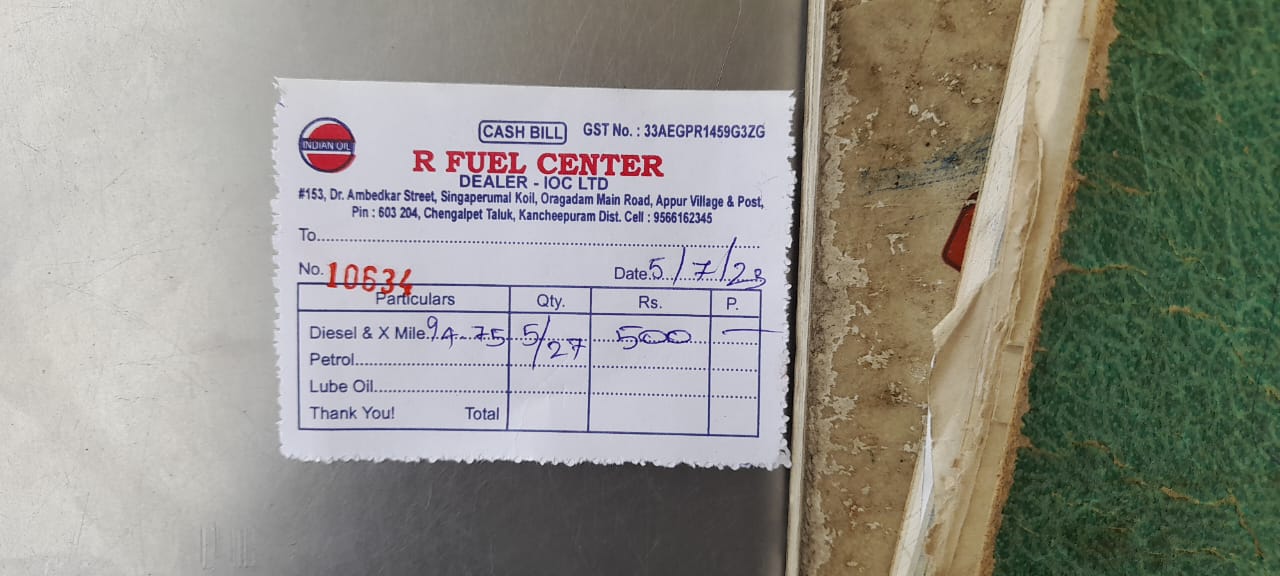 INDIAN OIL
CASH BILL GST No. : 33AEGPR1459G3ZG
R FUEL CENTER
DEALER - IOC LTD
#153, Dr. Ambedkar Street, Singaperumal Koil, Oragadam Main Road, Appur Village & Post,
Pin : 603 204, Chengalpet Taluk, Kancheepuram Dist. Cell : 9566162345
To
No. 10634 Date 5/7/23
Particulars Qty. Rs. P.
Diesel & X Mile 94-75 5/27 500 —
Petrol
Lube Oil
Thank You! Total